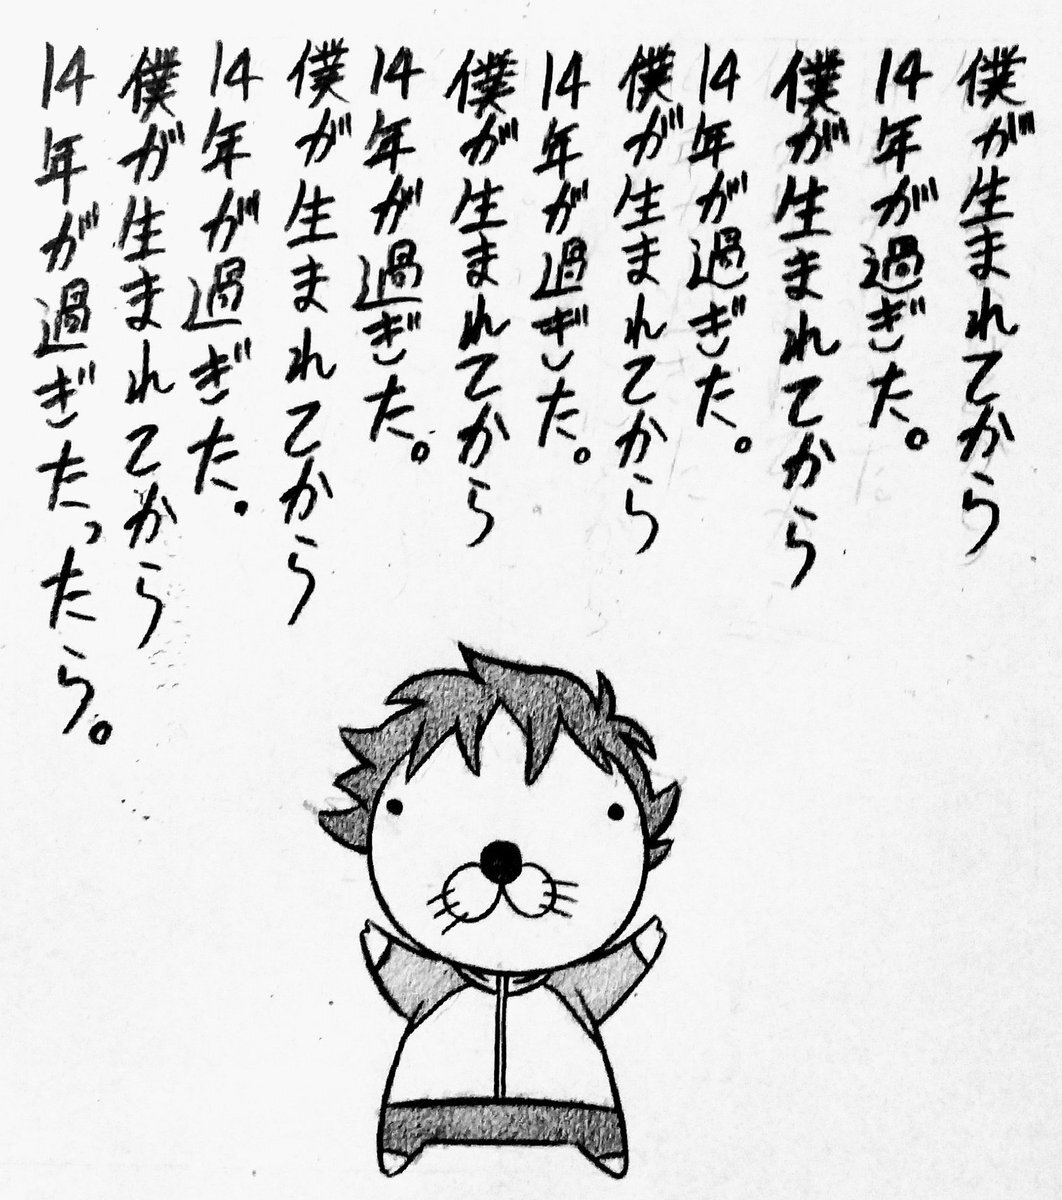 僕が生まれてから
14年が過ぎた。
僕が生まれてから
14年が過ぎた。
僕が生まれてから
14年が過ぎた。
僕が生まれてから
14年が過ぎた。
僕が生まれてから
14年が過ぎた。
僕が生まれてから
14年が過ぎたったら。